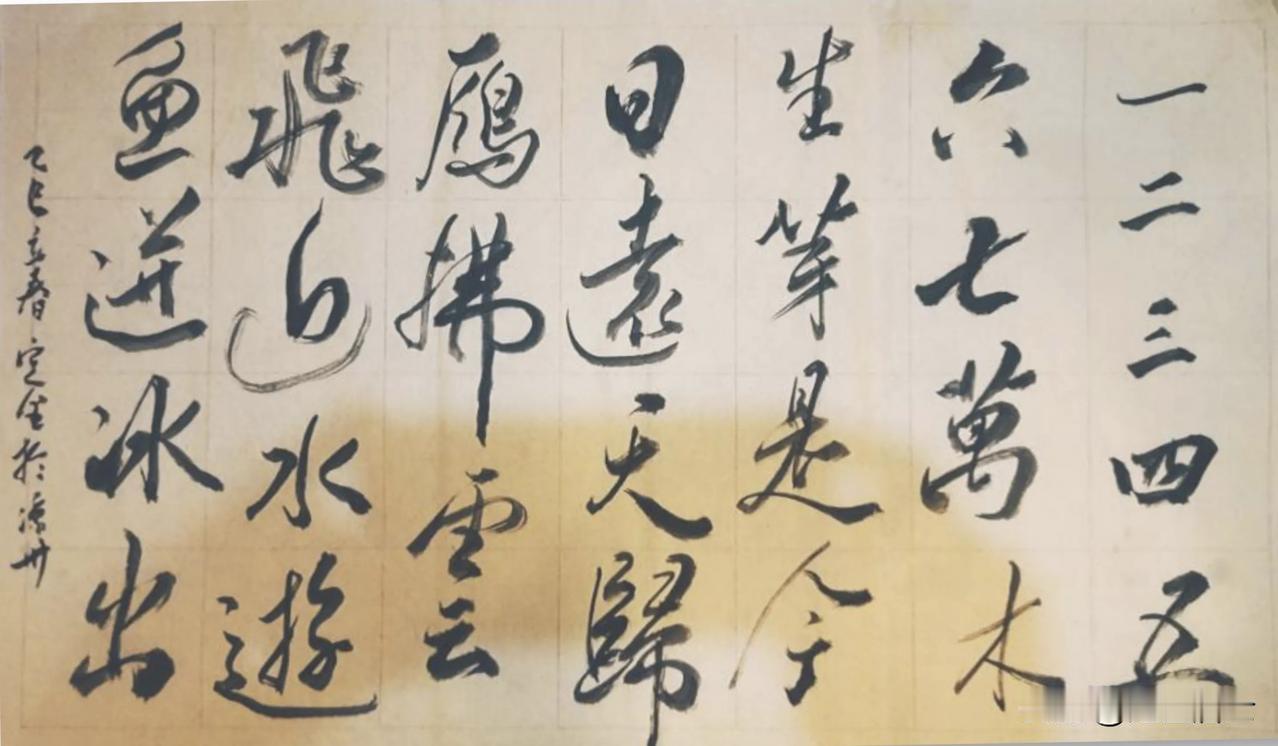 一二三四五
六七萬木
生芽是今
日遠天歸
鴈拂雲
飛近水遊
魚迸冰出
乙巳立春定生於州